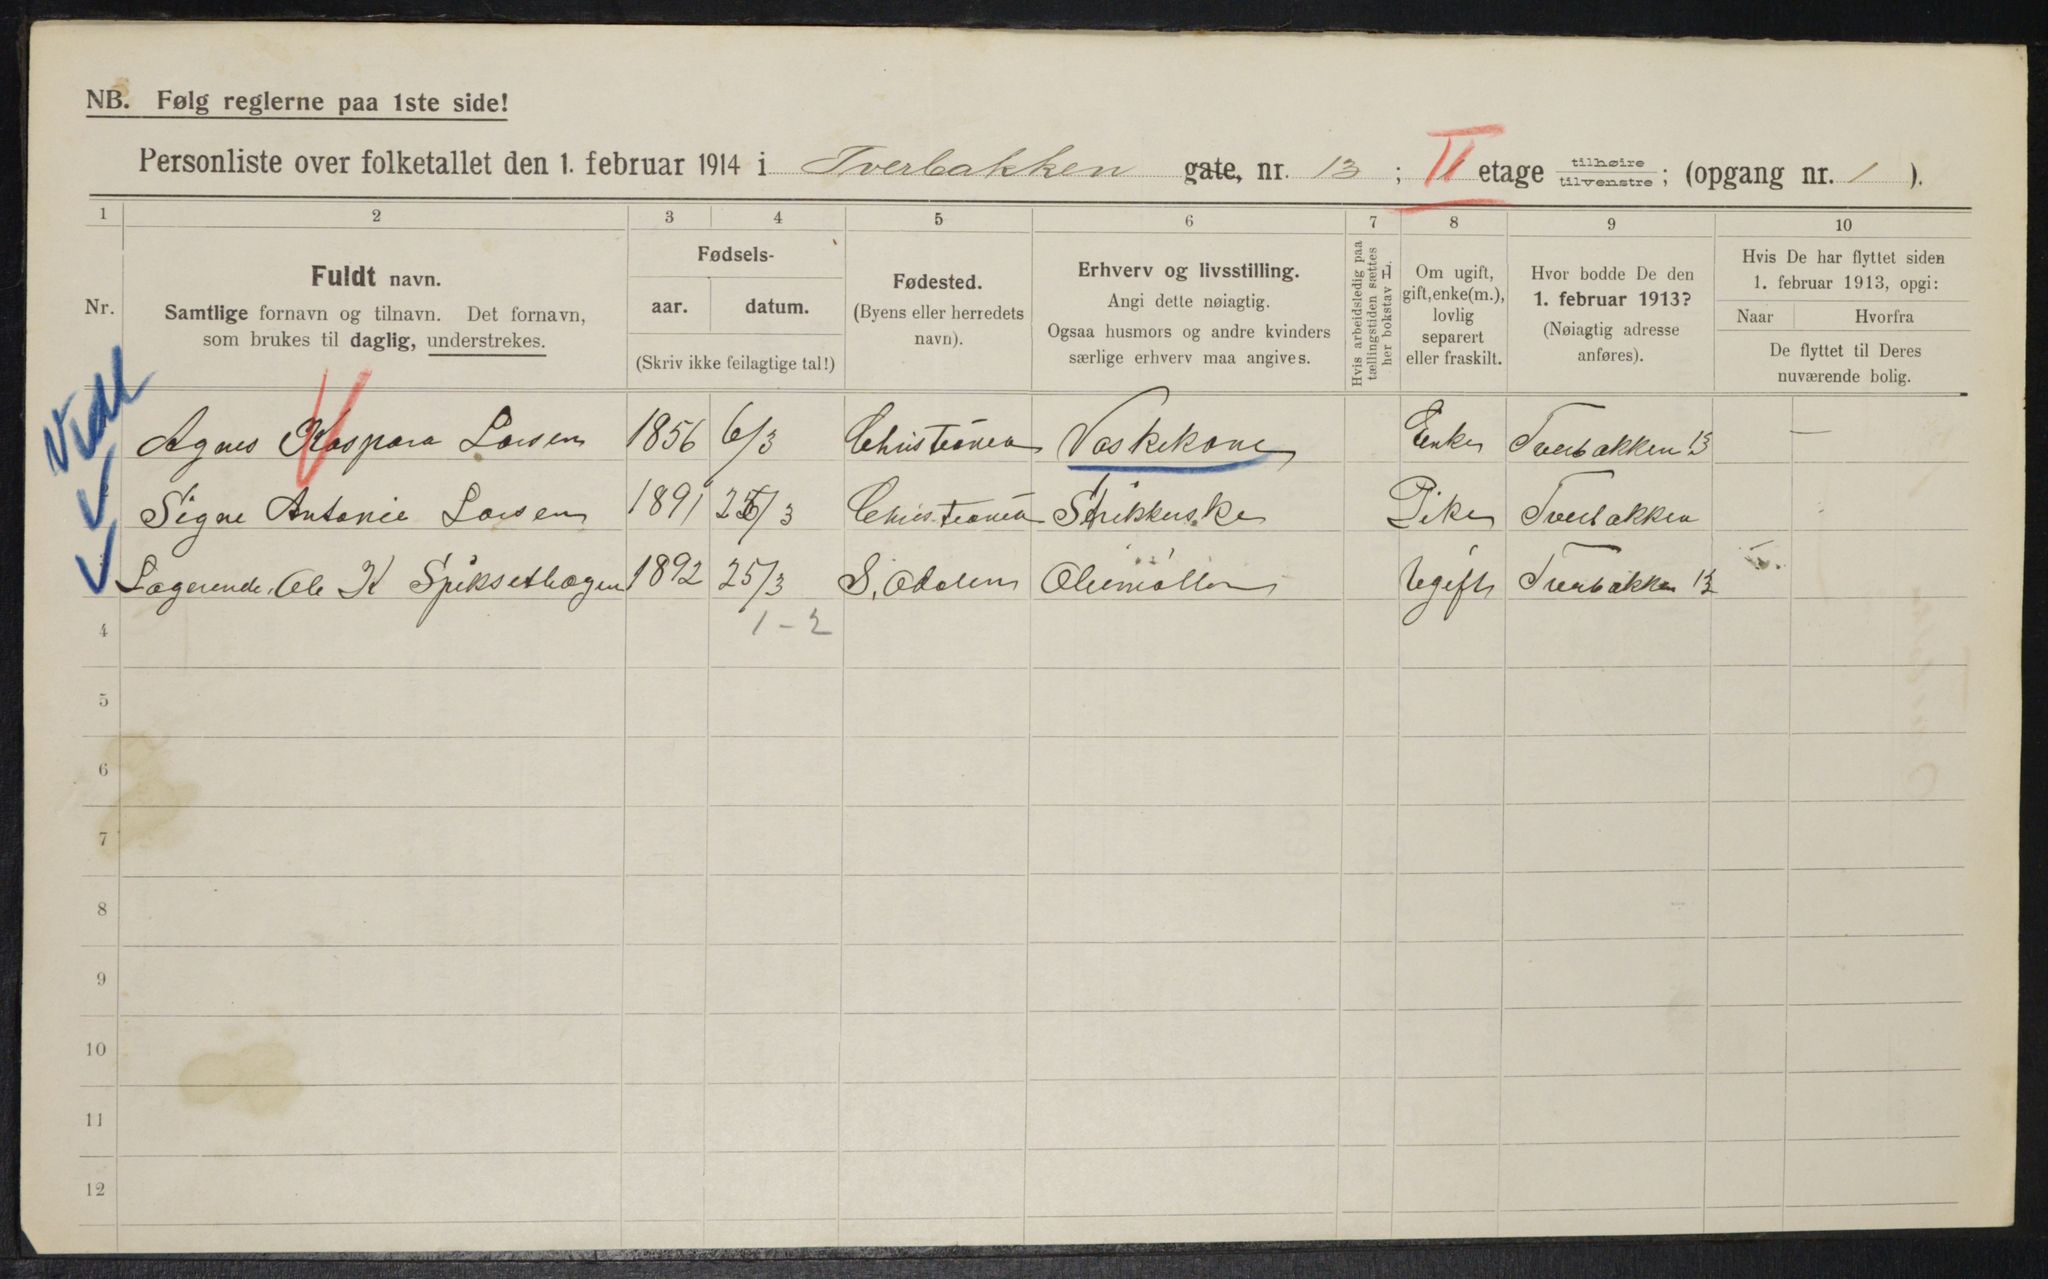 NB. Følg reglerne paa 1ste side!
Personliste over folketallet den 1. februar 1914 i Tverbakken gate, nr. 13 ; II etage tilhøire / tilvenstre ; (opgang nr. 1 ).
1 2 3 4 5 6 7 8 9 10
Nr.
Fuldt navn.
Samtlige fornavn og tilnavn. Det fornavn,
som brukes til daglig, understrekes.
Fødsels-
aar. datum.
(Skriv ikke feilagtige tal!)
Fødested.
(Byens eller herredets
navn).
Erhverv og livsstilling.
Angi dette nøiagtig.
Ogsaa husmors og andre kvinders
særlige erhverv maa angives.
Hvis arbeidsledig paa
tællingstiden sættes
her bokstav L.
Om ugift,
gift, enke(m.),
lovlig
separert
eller fraskilt.
Hvor bodde De den
1. februar 1913?
(Nøiagtig adresse
anføres).
Hvis De har flyttet siden
1. februar 1913, opgi:
Naar Hvorfra
De flyttet til Deres
nuværende bolig.
Agnes Kaspara Larsen 1856 6/3 Christiania Vaskekone Enke Tverbakken 13 —
Signe Antonie Larsen 1891 25/3 Christiania Strikkerske Pike Tverbakken
Logerende Ole K Spiksethagen 1892 25/3 S. Odalen Ugift Tverbakken 13
1-2
4
5
6
7
8
9
10
11
12